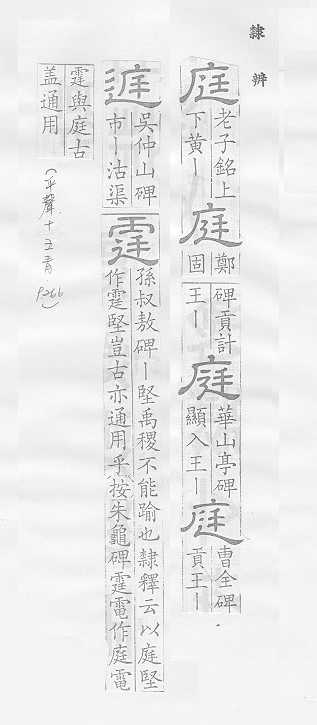 隸辨
庭 老子銘上
下黃丨 庭 鄭
固 碑貢計
王丨 庭 華山亭碑
顯入王丨 庭 曹全碑
貢王丨
遅 吳仲山碑
市丨沽渠 霆 孫叔敖碑丨堅禹稷不能踰也隸釋云以庭堅
作霆堅豈古亦通用乎按朱龜碑霆電作庭電
霆與庭古
盖通用
(平聲十五青 P266)